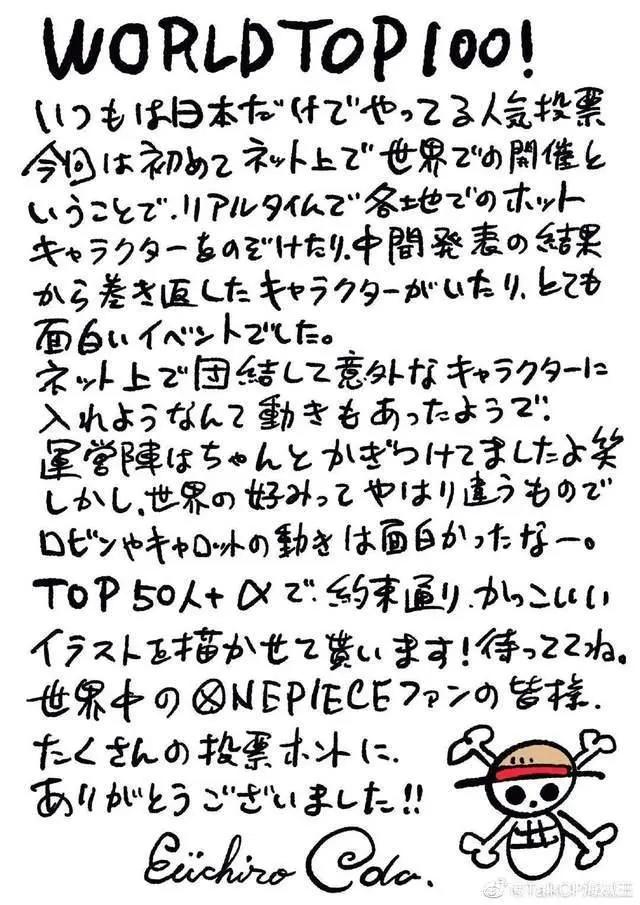 WORLD TOP 100!
いつもは日本だけでやってる人気投票
今回は初めてネット上で世界での開催と
いうことで、リアルタイムで各地でのホット
キャラクターをのぞけたり、中間発表の結果
から巻き返したキャラクターがいたり、とても
面白いイベントでした。
ネット上で団結して意外なキャラクターに
入れようなんて動きもあったようで、
運営陣はちゃんとかぎつけてましたよ笑
しかし、世界の好みってやはり違うもので
ロビンやキャロットの動きは面白かったなー。
TOP 50人+αで、約束通り、かっこいい
イラストを描かせて貰います!待っててね。
世界中のONEPIECEファンの皆様、
たくさんの投票ホントに、
ありがとうございました!!
Eiichiro Oda.
@TalkOP海贼王